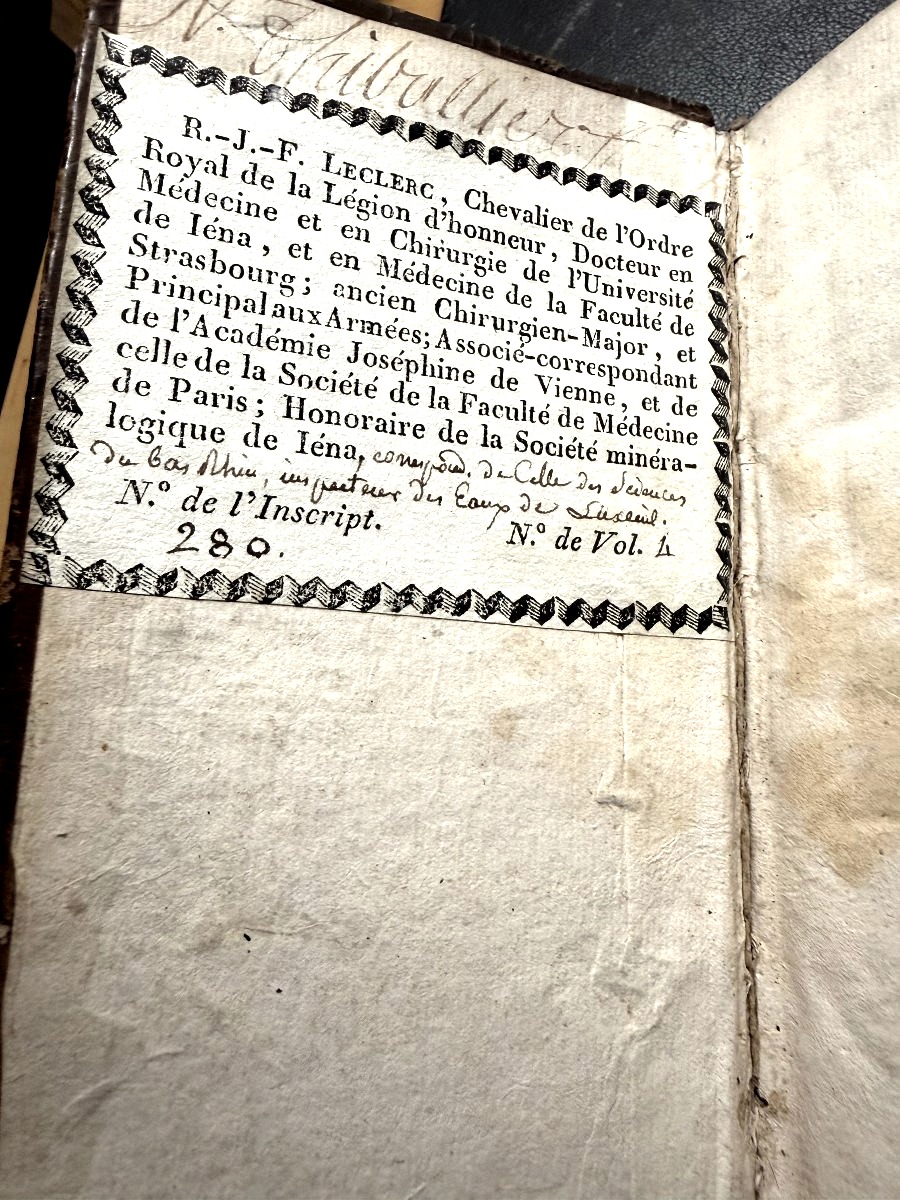 R.-J.-F. LECLERC, Chevalier de l'Ordre
Royal de la Légion d'honneur, Docteur en
Médecine et en Chirurgie de l'Université
de Iéna, et en Médecine de la Faculté de
Strasbourg; ancien Chirurgien-Major, et
Principal aux Armées; Associé-correspondant
de l'Académie Joséphine de Vienne, et de
celle de la Société de la Faculté de Médecine
de Paris; Honoraire de la Société minéra-
logique de Iéna, correspond. de Celle des Sciences
du bas Rhin, inspecteur des Eaux de Luxeuil.
N.º de l'Inscript.
N.º de Vol. 4
280.